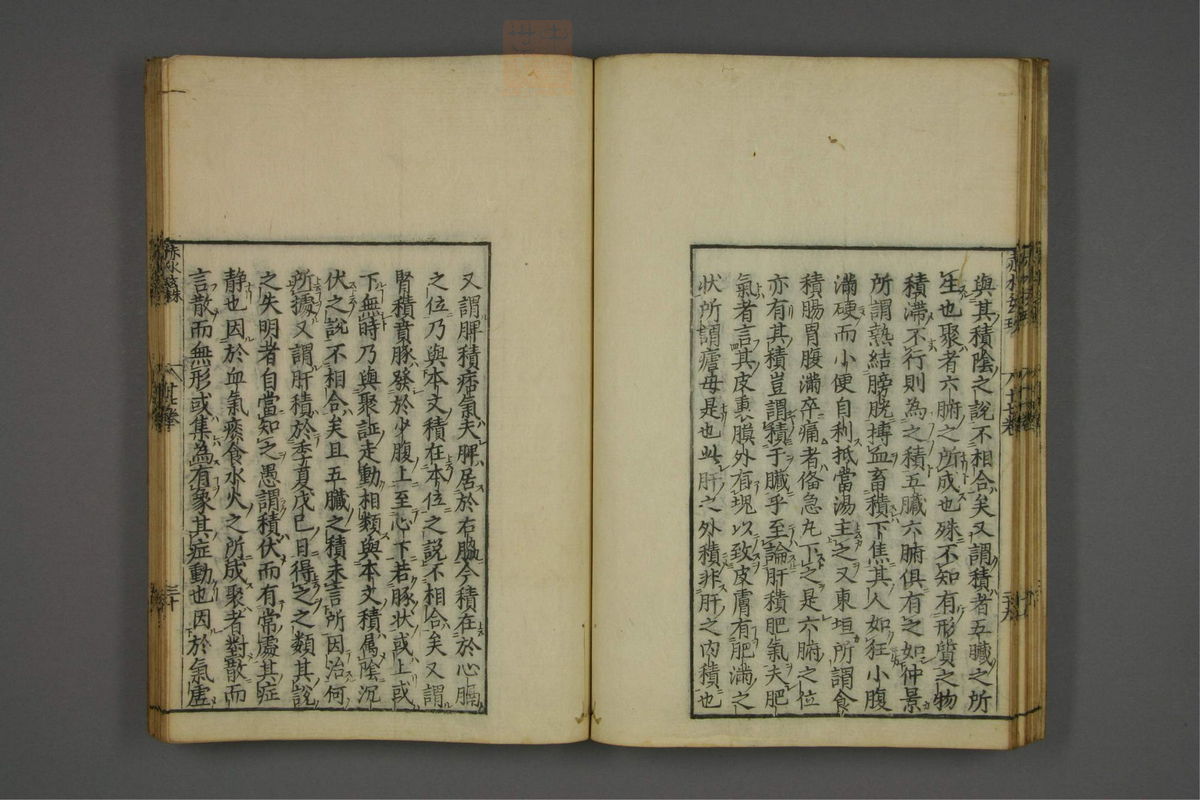 與其積陰之說不相合矣又謂積者五臟之所
生也聚者六腑之所成也殊不知有形質之物
積滯不行則為之積五臟六腑俱有之如仲景
所謂熱結膀胱搏血畜積下焦其人如狂小腹
滿硬而小便自利抵當湯主之又東垣所謂食
積腸胃腹滿卒痛者俻急丸下之是六腑之位
亦有其積豈謂積于臟乎至論肝積肥氣夫肥
氣者言其皮裏膜外有塊以致皮膚有肥滿之
狀所謂瘧母是也此肝之外積非肝之内積也
又謂脾積痞氣夫脾居於右脇今積在於心膈
之位乃與本文積在本位之說不相合矣又謂
腎積賁豚發於少腹上至心下若豚状或上或
下無時乃與聚証走動相類與本文積属陰沉
伏之說不相合矣且五臟之積未言所因治何
所據又謂肝積於季夏戊巳日得之之類其說
之失明者自當知之愚謂積伏而有常處其症
静也因於血氣痰食水火之所成聚者對散而
言散而無形或集為有象其症動也因於氣虚
廿七卷
三十